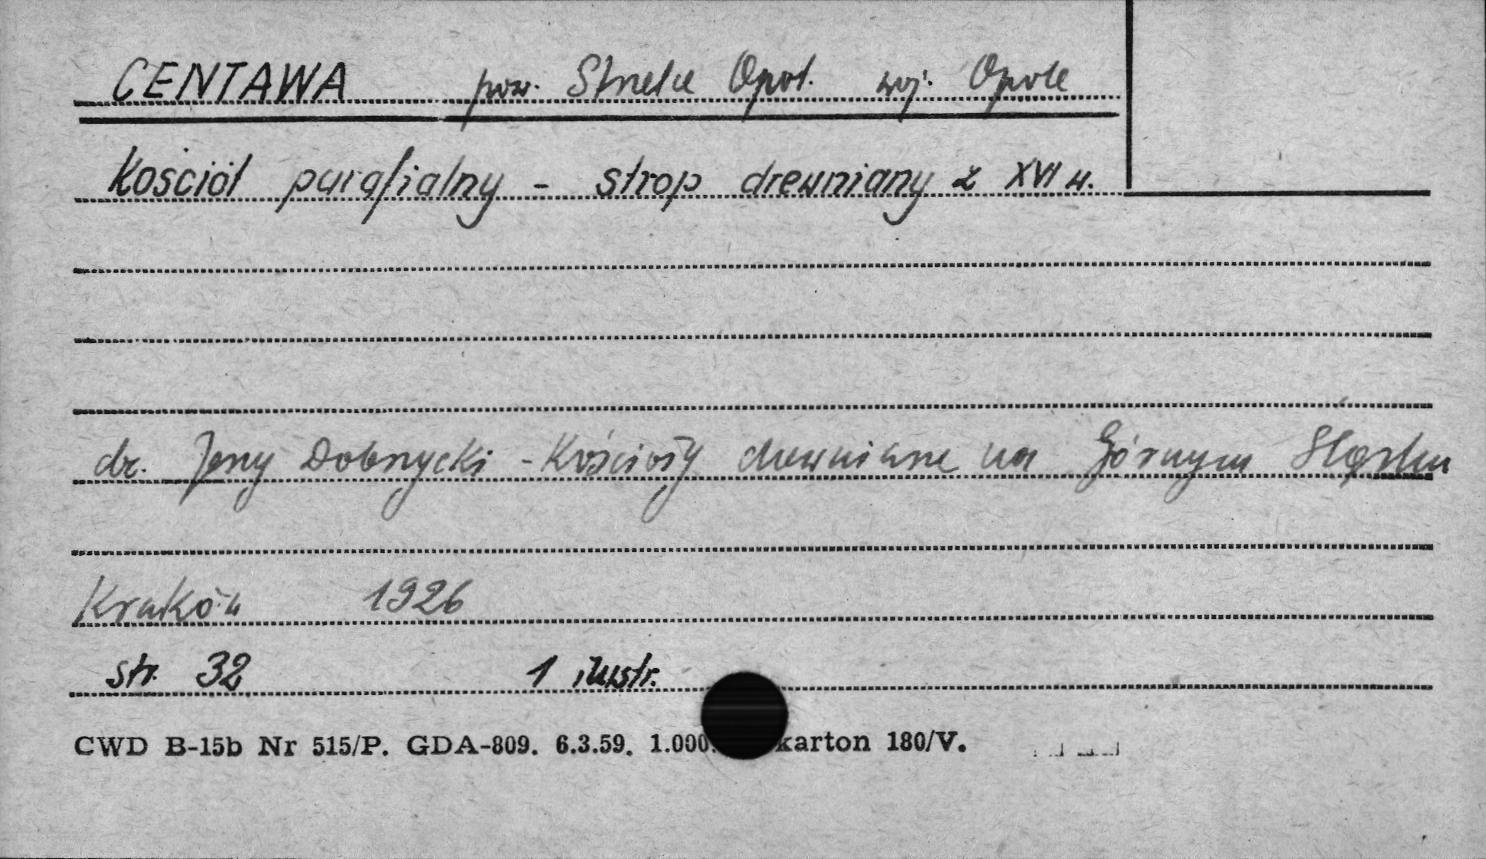 CENTAWA pow. Strzelce Opol. woj. Opole
Kościół parafialny - strop drewniany z XVI w.
dr. Jerzy Dobrzycki - Kościoły drewniane na Górnym Śląsku
Kraków 1926
str. 32 1 ilustr.
CWD B-15b Nr 515/P. GDA-809. 6.3.59. 1.000. karton 180/V.